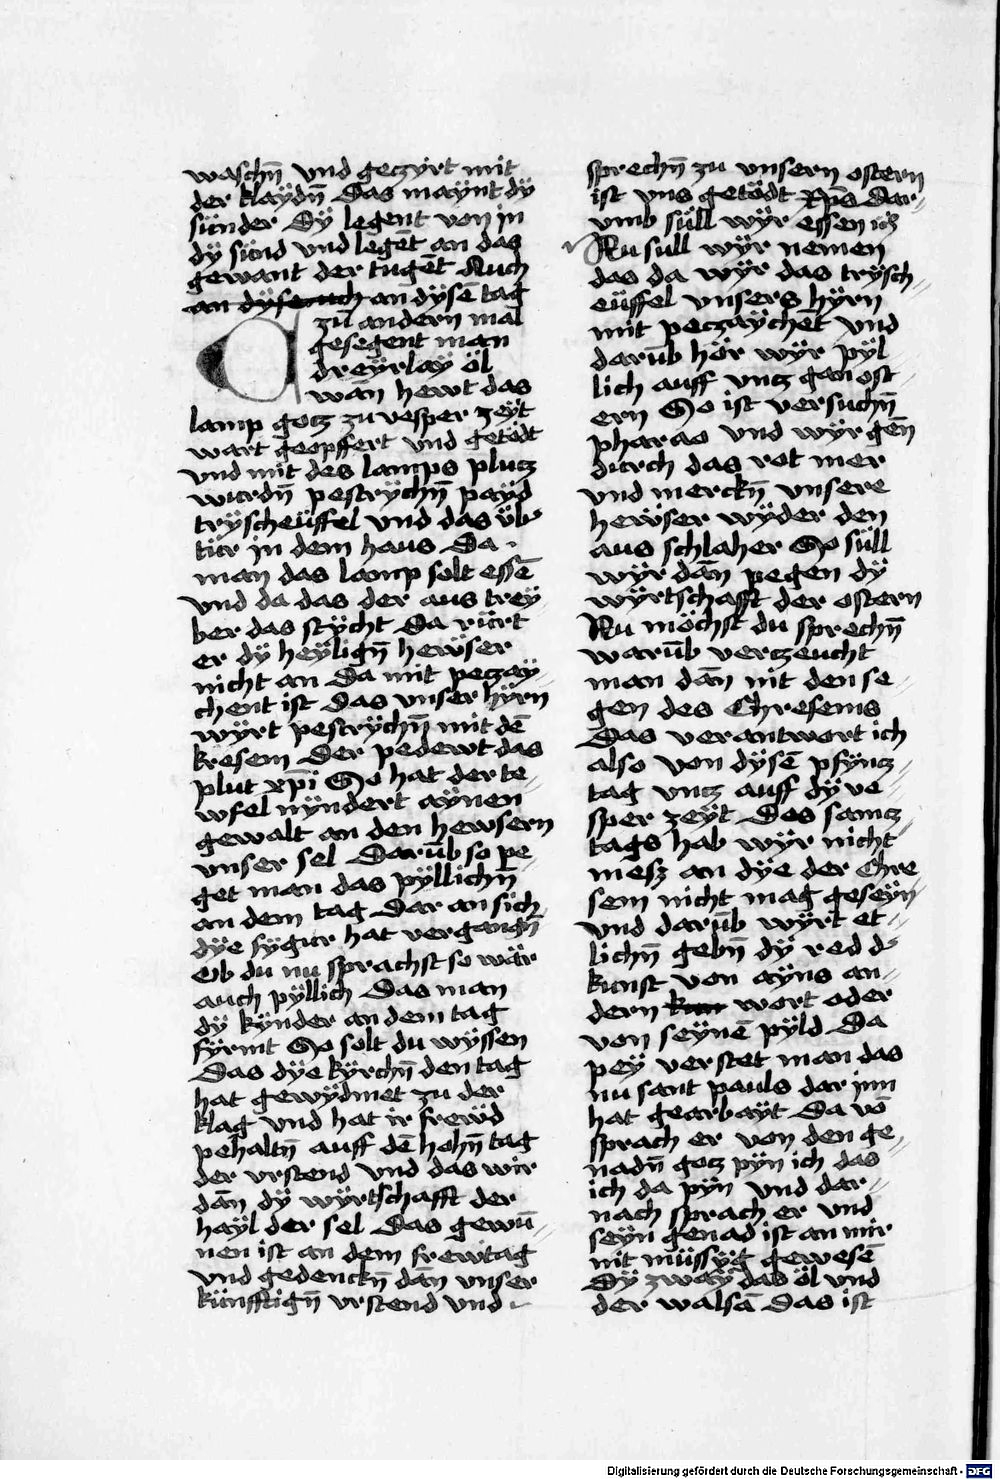 waschn̄ vnd geczyrt mit
der klaÿdn̄ Das maÿnt dÿ
sünder Dÿ legent von in
dÿ sünd vnd legēt an das
gewant der tugēt Auch
an dÿsē tag
zu andern mal
gesegent man
dreÿrlaÿ öl
wān hewt das
lamp gotz zu vesper zeÿt
wart geopffert vnd getödt
vnd mit des lamps plutz
wurdn̄ pestrÿchn̄ paÿd
trÿscheüffel vnd das üb
tür in dem haus Da
man das lamp solt essē
vnd da das der aus treÿ
ber das sÿcht Da rürt
er dÿ heÿlign̄ hewser
nicht an Da mit peczaÿ-
chent ist Das vnser hÿrn
wÿrt pestrÿchn̄ mit dē
kresem Der pedewt das
plut xp̄i So hat der te-
wfel nÿndert aÿnen
gewalt an den hewsern
vnser sel Darūb so pe-
get man das pÿllichn̄
an dem tag Dar an sich
dÿe fÿgur hat vergangn̄
Ob du nu sprachst so wär
auch pÿllich Das man
dÿ kÿnder an dem tag
fÿrmt So solt du wÿssen
Das dÿe kÿrchn̄ den tag
hat gewÿdmet zu der
klag vnd hat ir frewd
pehaltn̄ auff dē hohn̄ tag
der vrstend vnd das wir
dān dÿ wÿrtschafft der
haÿl der sel Das gewū-
nen ist an dem freÿtag
vnd gedenckn̄ dān vnser
künfftign̄ vrstend vnd
sprechn̄ zu vnsern ostern
ist vns getödt xp̄s Dar-
vmb süll wÿr essen
Nu sull wÿr nemen
das da wÿr das trÿsch-
eüffel vnsers hÿrn
mit peczaÿchēt vnd
darūb hör wÿr pÿl
lich auff vntz gan ost-
ern So ist versuchn̄
pharao vnd wÿr gēn
durch das rot mer
vnd merckn̄ vnsere
hewser wÿder den
aus schlaher So süll
wÿr dān pegen dÿ
wÿrtschafft der ostern
Nu möchst du sprechn̄
warūb verczeucht
man dān nit den se-
gen des Chresems
Das verantwort ich
also von dÿsē pfÿncz-
tag vntz auff dÿ ve-
sper zeÿt Des samcz-
tags hab wÿr nicht
mesz an dÿe der Chre-
sem nicht mag geseÿn
vnd darūb wÿrt et-
lichn̄ gebn̄ dÿ red d
kunst von aÿns an-
dern wort oder
von seÿnē pÿld Da
peÿ verstet man das
nu sant pauls dar inn
hat gearbaÿt Da vō
sprach er von den ge-
nadn̄ gotz pÿn ich das
ich da pÿn vnd dar-
nach sprach er vnd
seÿn genad ist an mir
nit müssÿg gewesē
Dÿ zwaÿ das öl vnd
der walsā Das ist
Digitalisierung gefördert durch die Deutsche Forschungsgemeinschaft - DFG